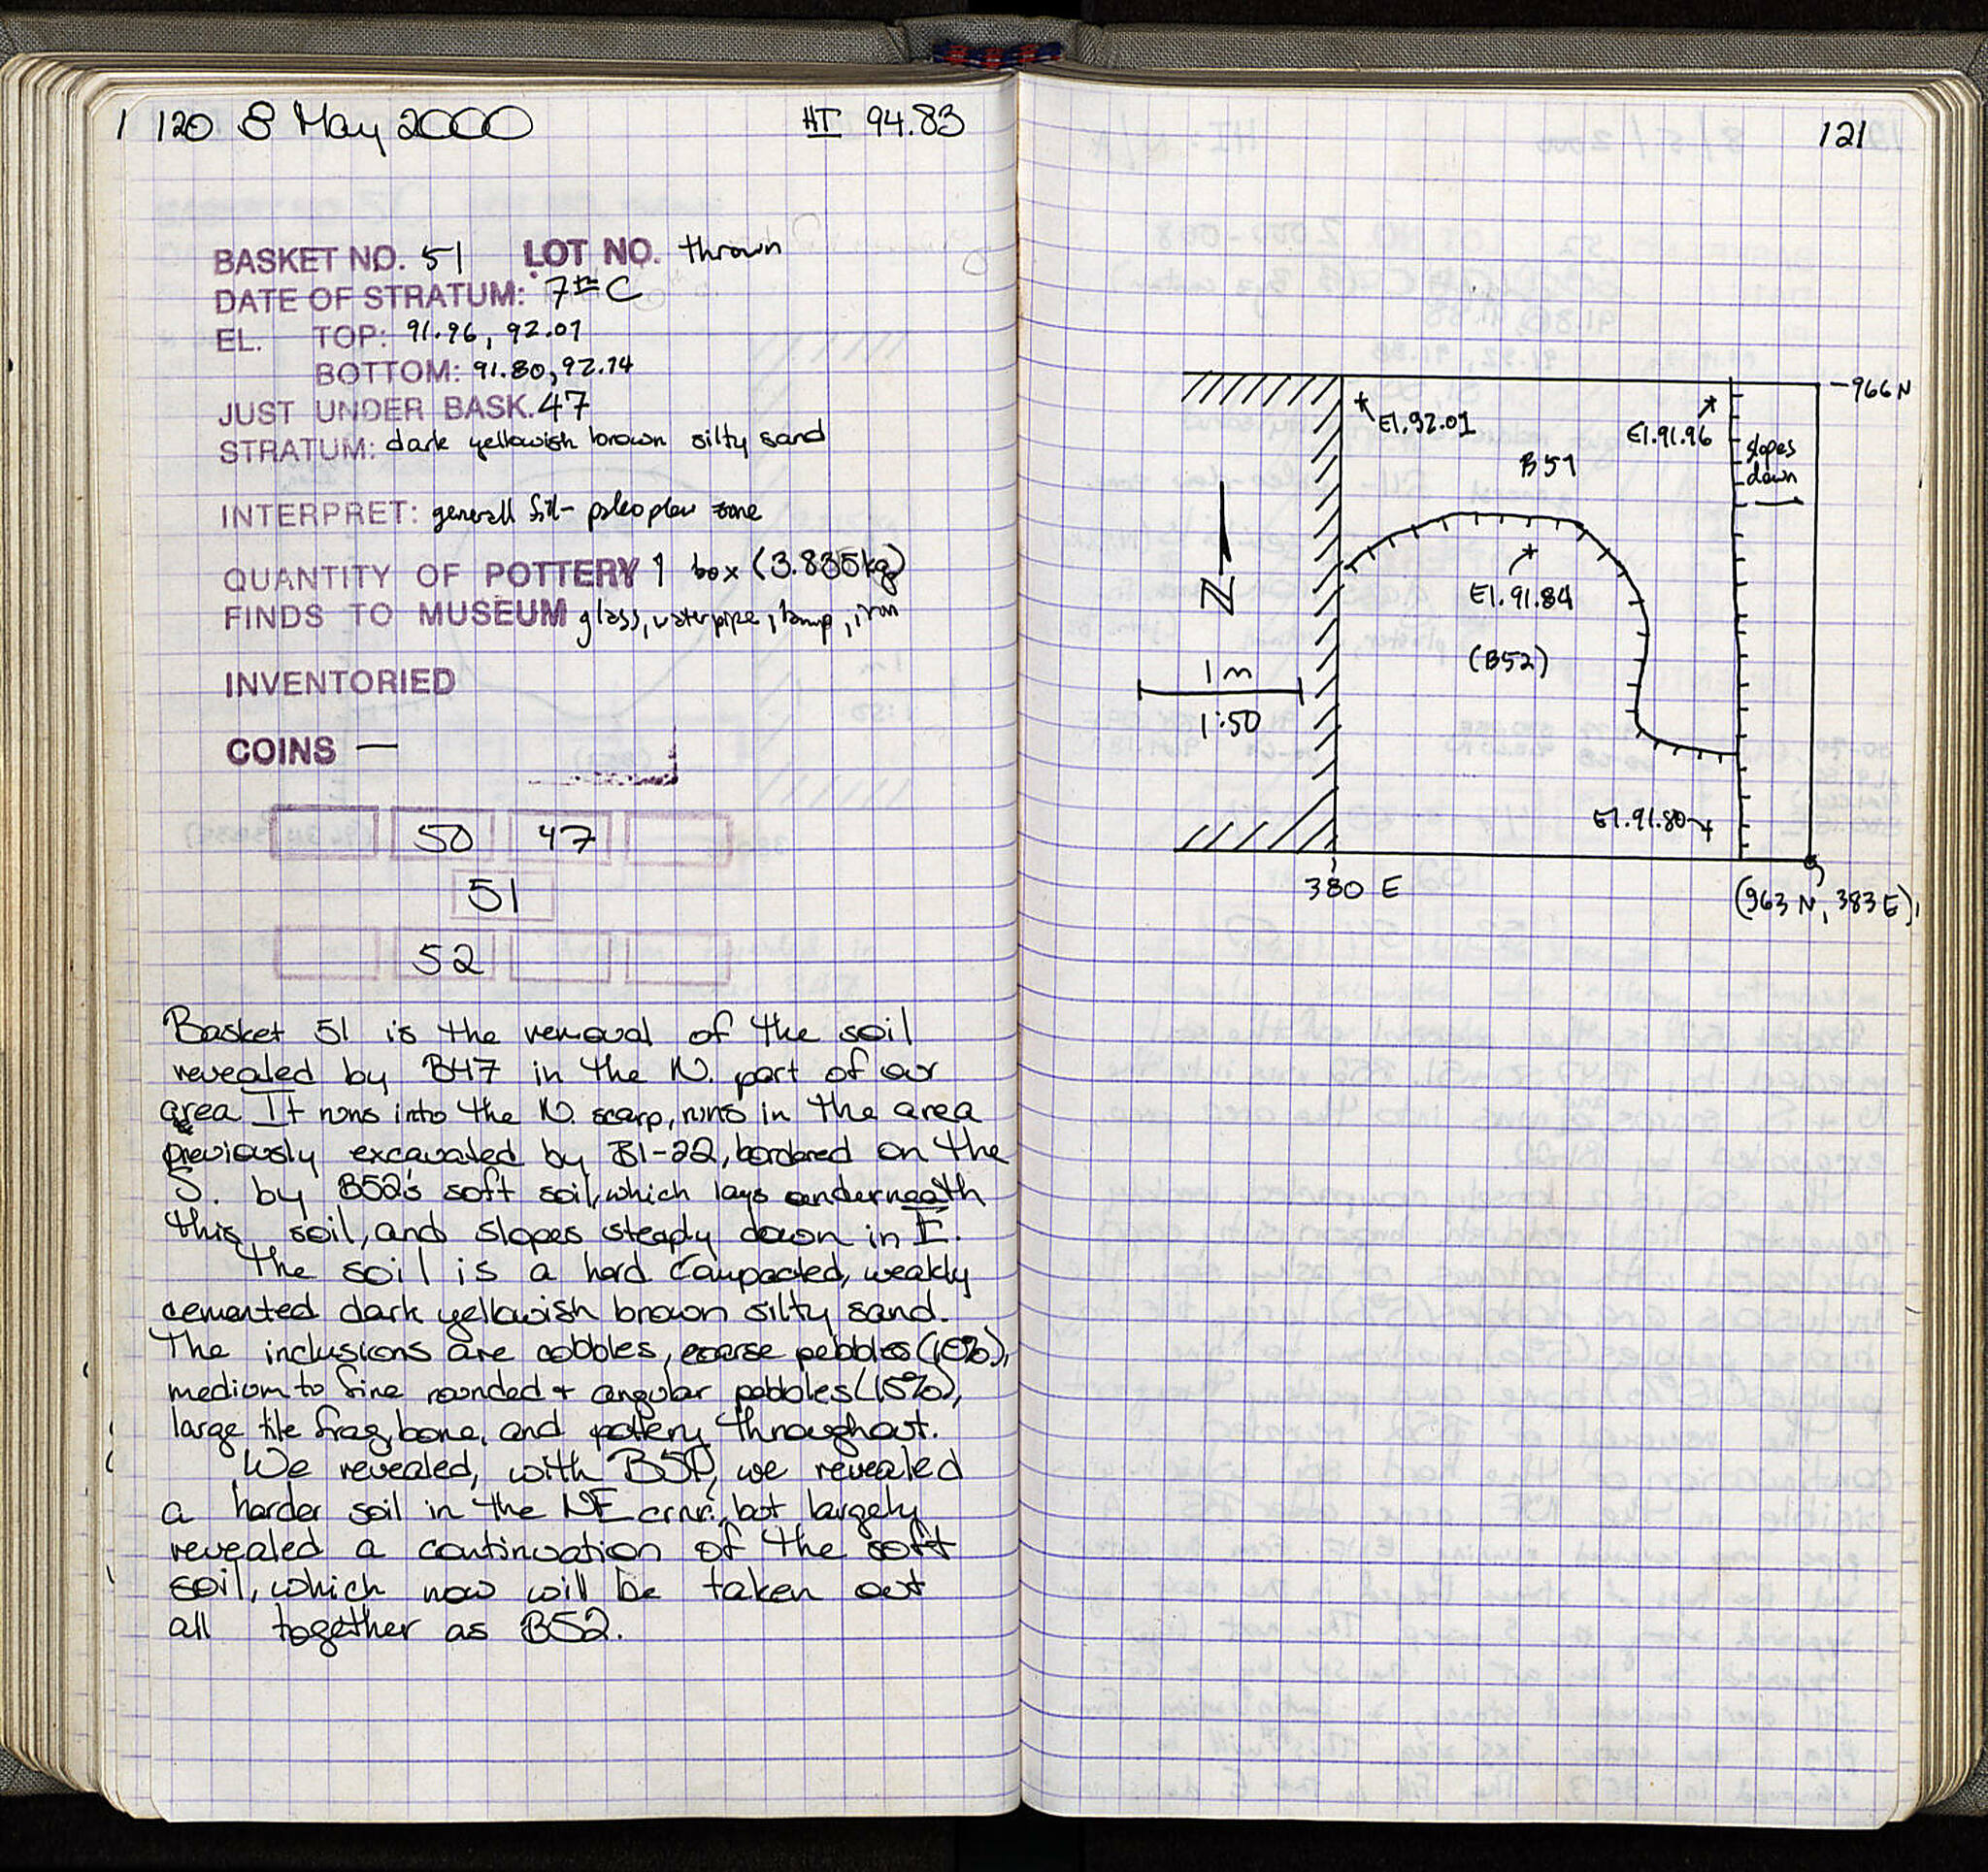 120 8 May 2000 HI 94.83
BASKET NO. 51 LOT NO. thrown
DATE OF STRATUM: 7th C
EL. TOP: 91.96, 92.01
BOTTOM: 91.80, 92.14
JUST UNDER BASK. 47
STRATUM: dark yellowish brown silty sand
INTERPRET: generall fill- paleoplow zone
QUANTITY OF POTTERY 1 box (3.835kg)
FINDS TO MUSEUM glass, waterpipe, lamp, iron
INVENTORIED
COINS —
50 47
51
52
Basket 51 is the removal of the soil
revealed by B47 in the N. part of our
area. It runs into the N. scarp, runs in the area
previously excavated by B1-22, bordered on the
S. by B52's soft soil, which lays underneath
this soil, and slopes steady down in E.
The soil is a hard compacted, weakly
cemented dark yellowish brown silty sand.
The inclusions are cobbles, coarse pebbles (10%),
medium to fine rounded + angular pebbles (15%),
large tile frag, bone, and pottery throughout.
We revealed, with B51, we revealed
a harder soil in the NE crnr., but largely
revealed a continuation of the soft
soil, which now will be taken out
all together as B52.
121
966 N
El. 92.01
El. 91.96
slopes
down
B51
El. 91.84
N
(B52)
1 m
1:50
El. 91.80
380 E
(963 N, 383 E)